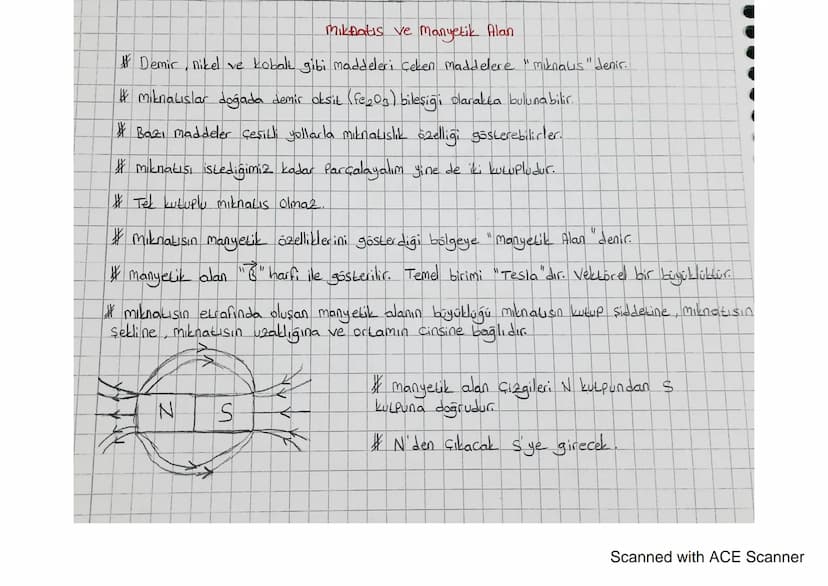 Mıknatıs ve Manyetik Alan
# Demir, nikel ve kobalt gibi maddeleri çeken maddelere "mıknatıs" denir.
# mıknatıslar doğada demir oksit (Fe₂O₃) bileşiği olarakta bulunabilir.
# Bazı maddeler çeşitli yollarla mıknatıslık özelliği gösterebilirler.
# mıknatısı istediğimiz kadar parçalayalım yine de iki kutupludur.
# Tek kutuplu mıknatıs olmaz.
# Mıknatısın manyetik özelliklerini gösterdiği bölgeye "manyetik Alan" denir.
# manyetik alan "B⃗" harfi ile gösterilir. Temel birimi "Tesla"dır. Vektörel bir büyüklüktür.
# mıknatısın etrafında oluşan manyetik alanın büyüklüğü mıknatısın kutup şiddetine, mıknatısın
şekline, mıknatısın uzaklığına ve ortamın cinsine bağlıdır.
# manyetik alan çizgileri N kutpundan S
kutpuna doğrudur.
N S
# N'den çıkacak S'ye girecek.
Scanned with ACE Scanner